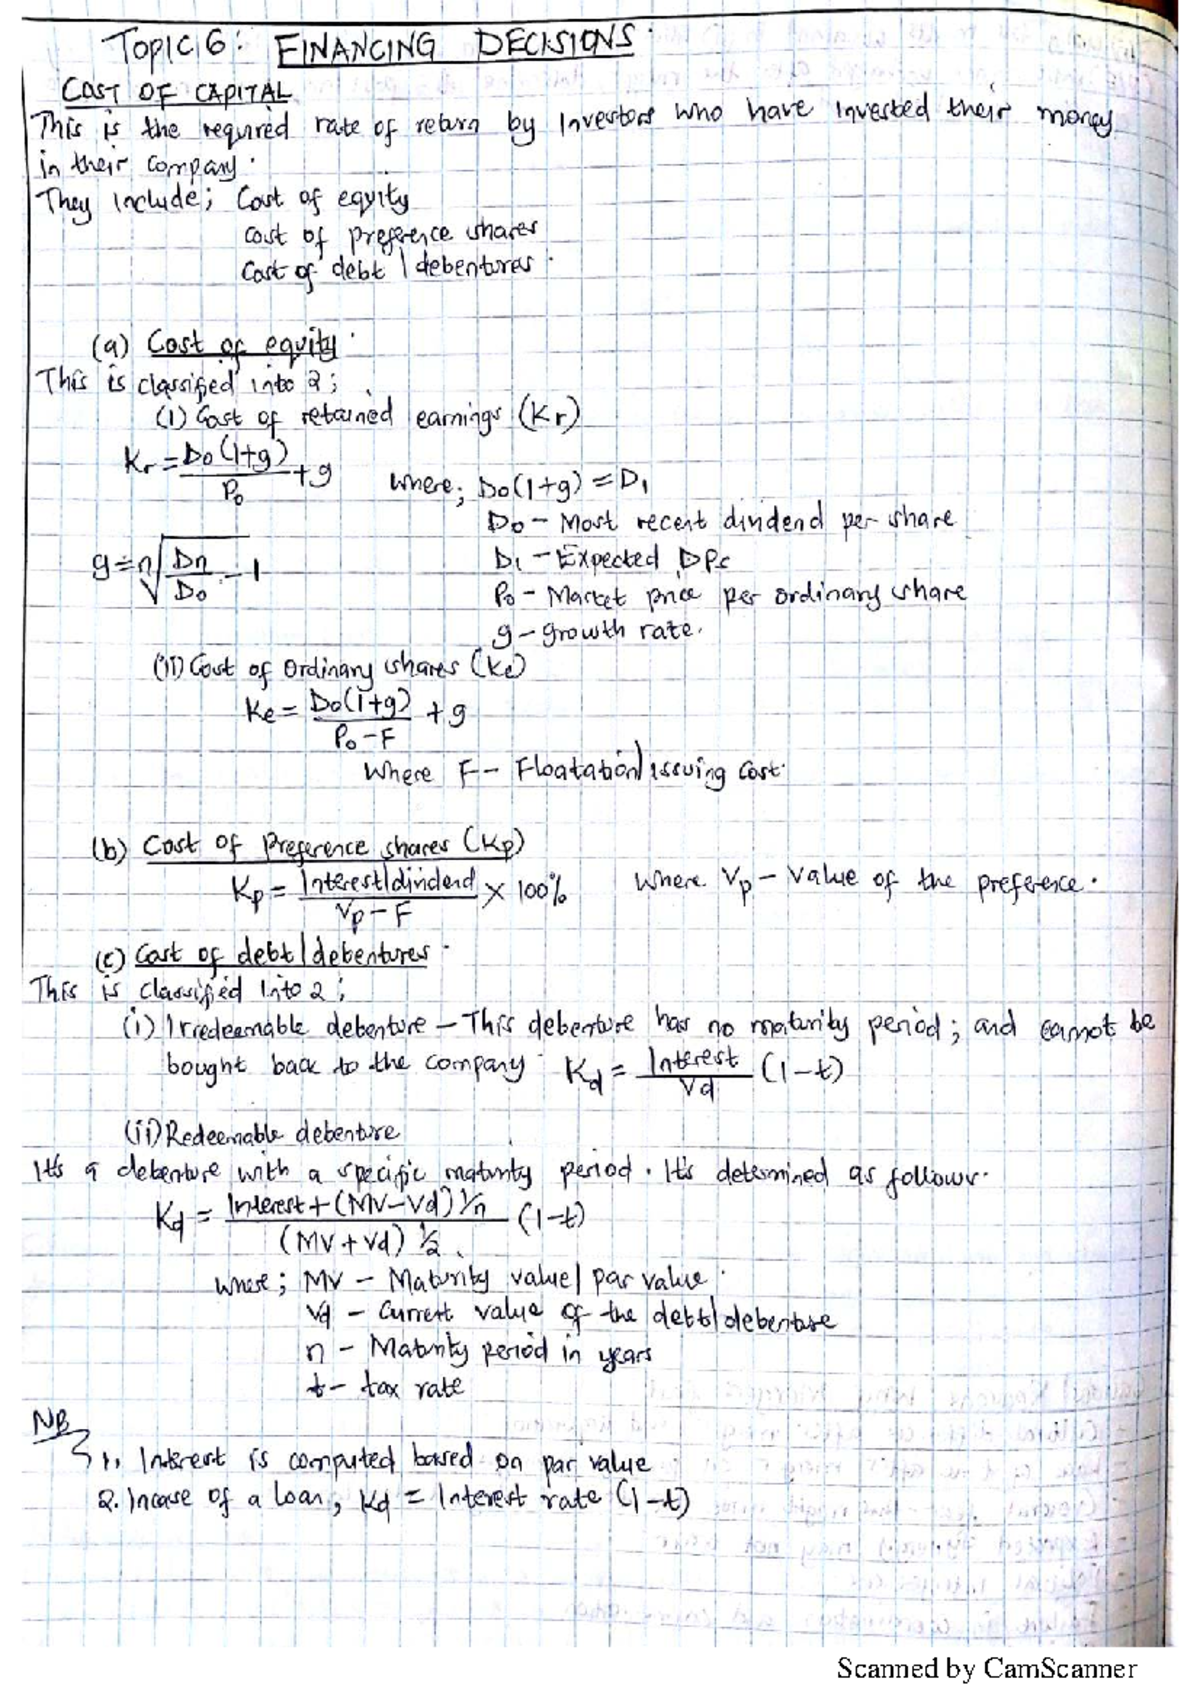 TOPIC 6: FINANCING DECISIONS.
COST OF CAPITAL
This is the required rate of return by Investors who have invested their money
in their company.
They include; Cost of equity
cost of preference shares
cost of debt | debentures.
(a) Cost of equity.
This is classified into 2;
(i) Cost of retained earnings (Kr)
Kr = D₀(1+g)/P₀ + g where; D₀(1+g) = D₁
D₀ - Most recent dividend per share
D₁ - Expected DPS
P₀ - Market price per ordinary share
g = n√(Dn/D₀) - 1
g - growth rate.
(ii) Cost of Ordinary shares (Ke)
Ke = D₀(1+g)/(P₀-F) + g
Where F - Floatation | issuing cost.
(b) Cost of Preference shares (Kp)
Kp = Interest|dividend/(Vp-F) × 100% Where Vp - Value of the preference.
(c) Cost of debt | debentures.
This is classified into 2;
(i) Irredeemable debenture - This debenture has no maturity period; and cannot be
bought back to the company. Kd = Interest/Vd (1-t)
(ii) Redeemable debenture
It's a debenture with a specific maturity period. It's determined as follows.
Kd = Interest + (MV-Vd) 1/n / (MV+Vd) 1/2 (1-t)
where; MV - Maturity value | par value.
Vd - Current value of the debt | debenture
n - Maturity period in years
t - tax rate
NB
1. Interest is computed based on par value
2. Incase of a loan, Kd = Interest rate (1-t)
Scanned by CamScanner